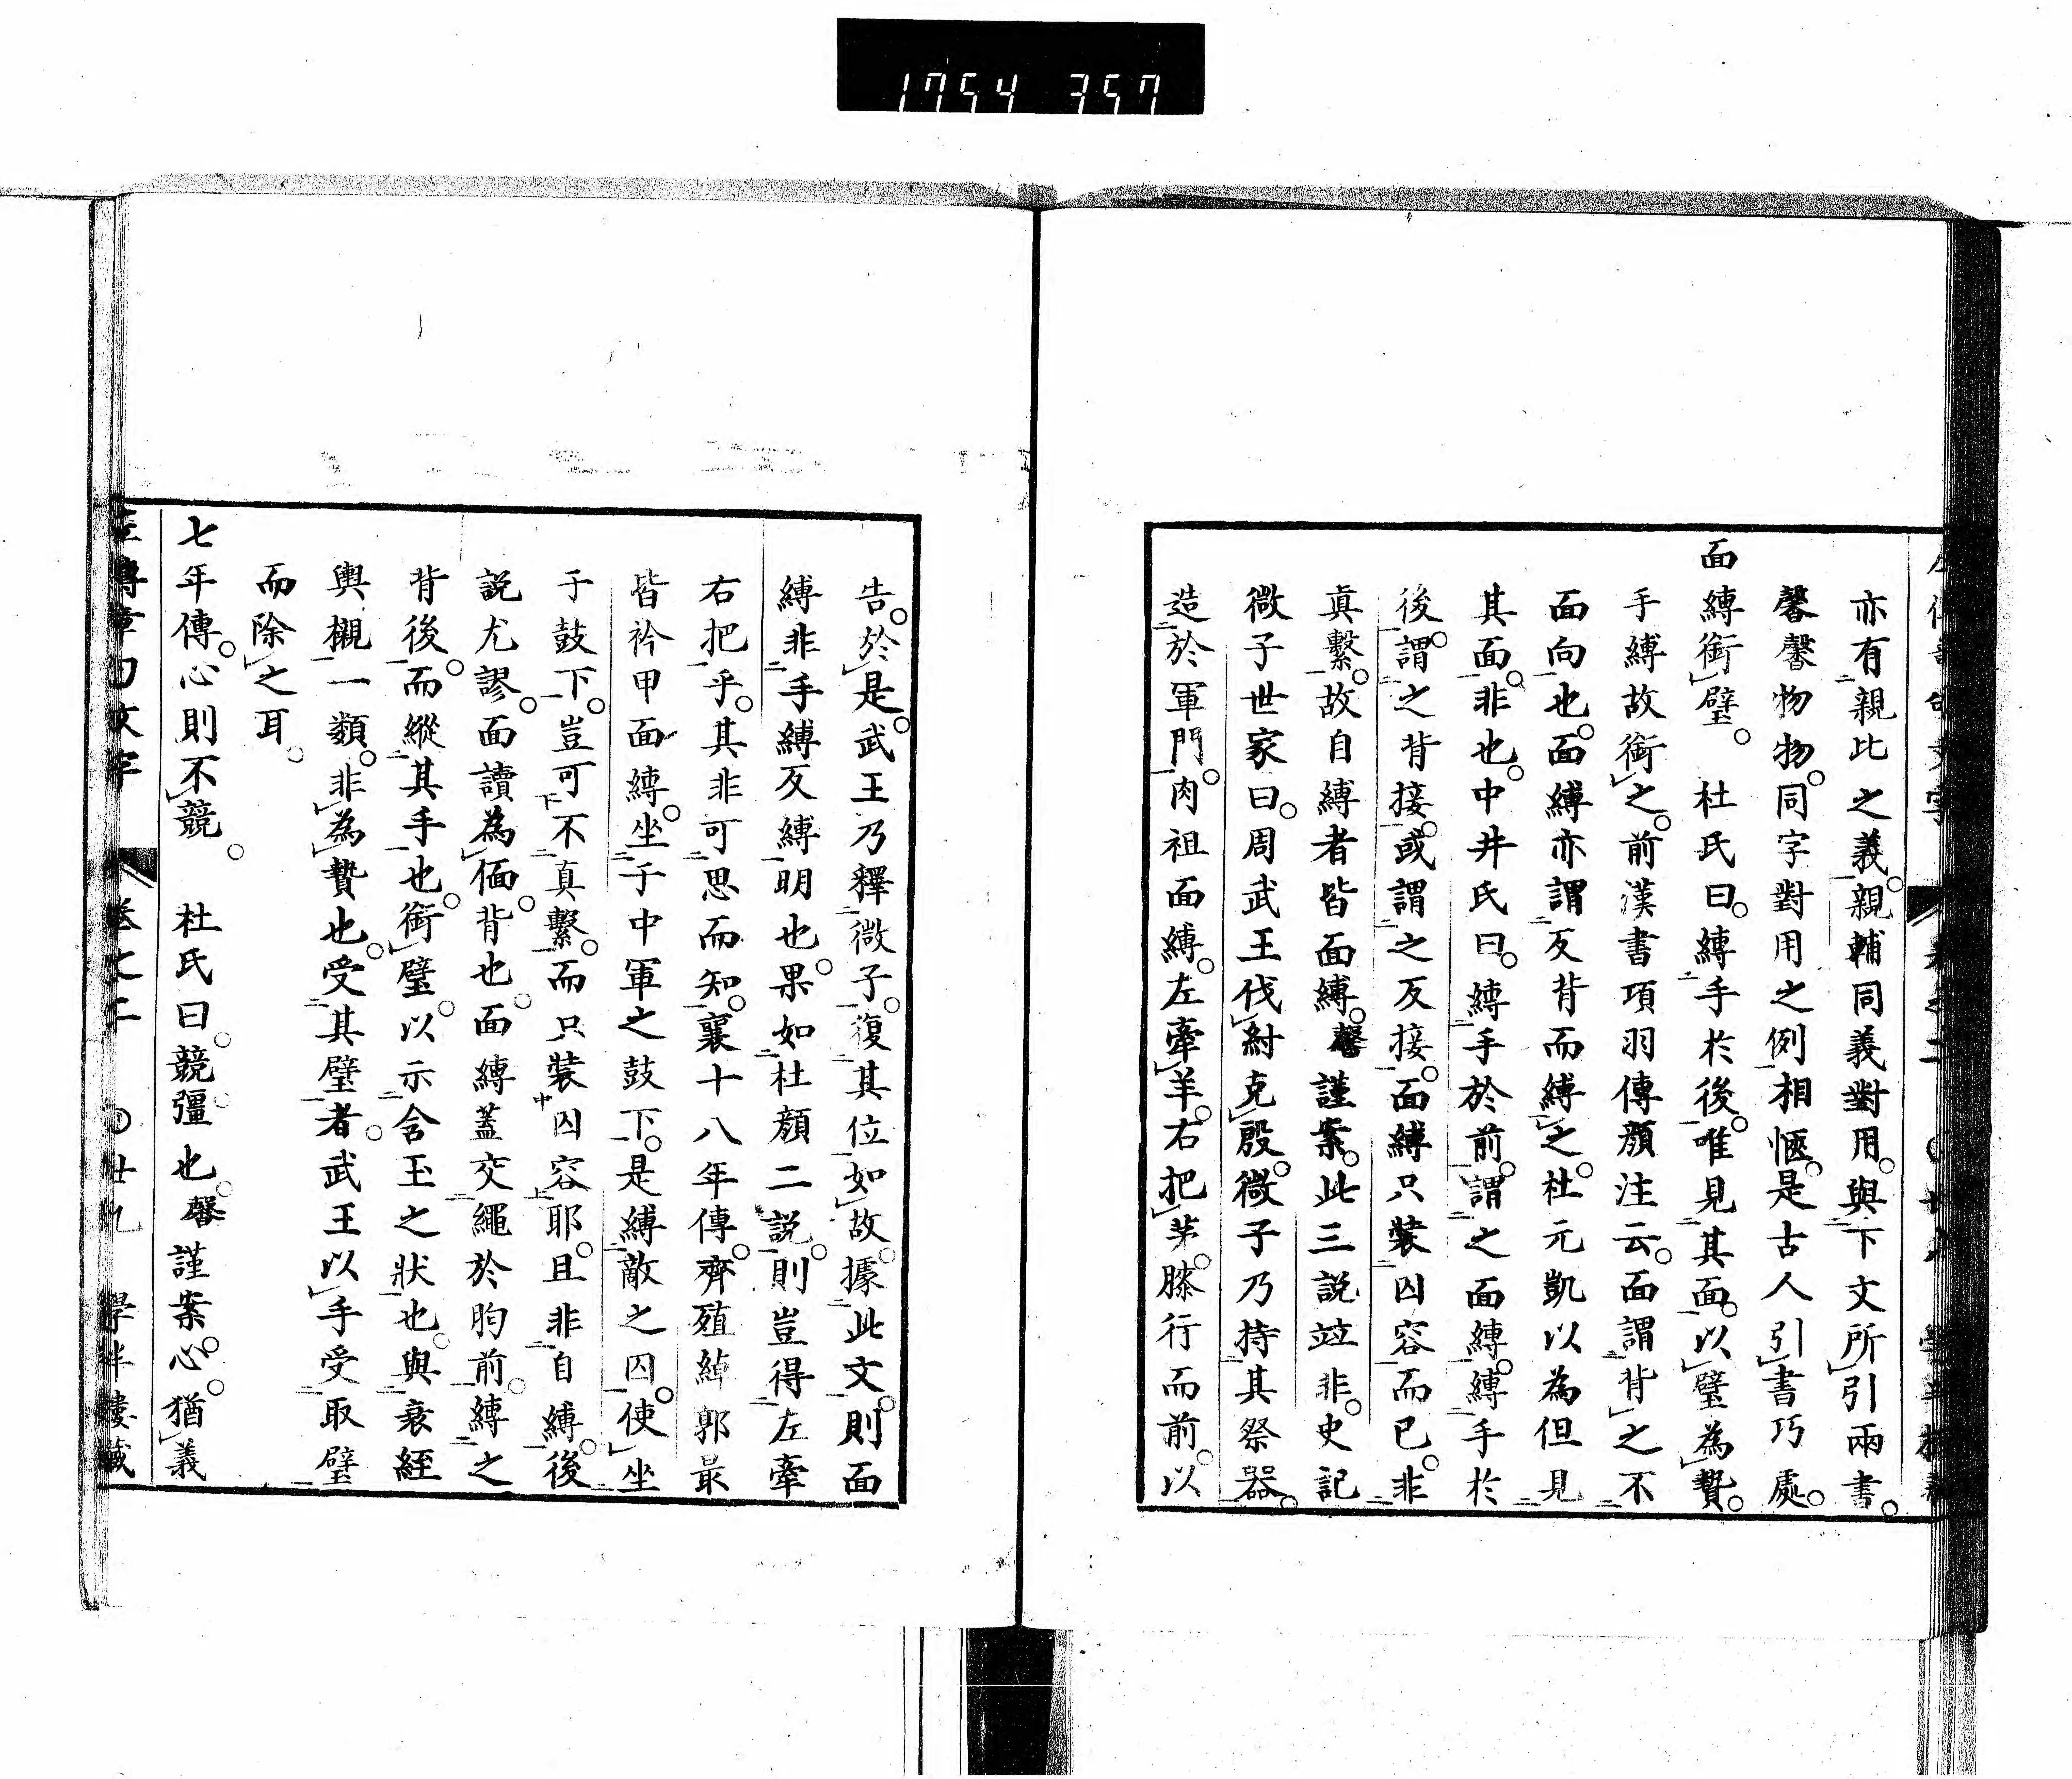 1754 357
亦有親比之義親輔同義對用與下文所引兩書
馨馨物物同字對用之例相愜是古人引書巧處
面縛銜璧 杜氏曰縛手於後唯見其面以璧為贄
手縛故銜之前漢書項羽傳顏注云面謂背之不
面向也面縛亦謂反背而縛之杜元凱以為但見
其面非也中井氏曰縛手於前謂之面縛縛手於
後謂之背接或謂之反接面縛只裝囚容而已非
真繫故自縛者皆面縛馨謹案此三説竝非史記
微子世家曰周武王伐紂克殷微子乃持其祭器
造於軍門肉袒面縛左牽羊右把茅膝行而前以
告於是武王乃釋微子復其位如故據此文則面
縛非手縛反縛明也果如杜顏二説則豈得左牽
右把乎其非可思而知襄十八年傳齊殖綽郭最
皆衿甲面縛坐于中軍之鼓下是縛敵之囚使坐
于鼓下豈可不真繫而只裝囚容耶且非自縛後
説尤謬面讀為偭背也面縛蓋交繩於胸前縛之
背後而縱其手也銜璧以示含玉之狀也與衰絰
輿櫬一類非為贄也受其璧者武王以手受取璧
而除之耳
七年傳心則不競 杜氏曰競彊也馨謹案心猶義
左傳章句文字 卷之二 廿九 學半樓藏